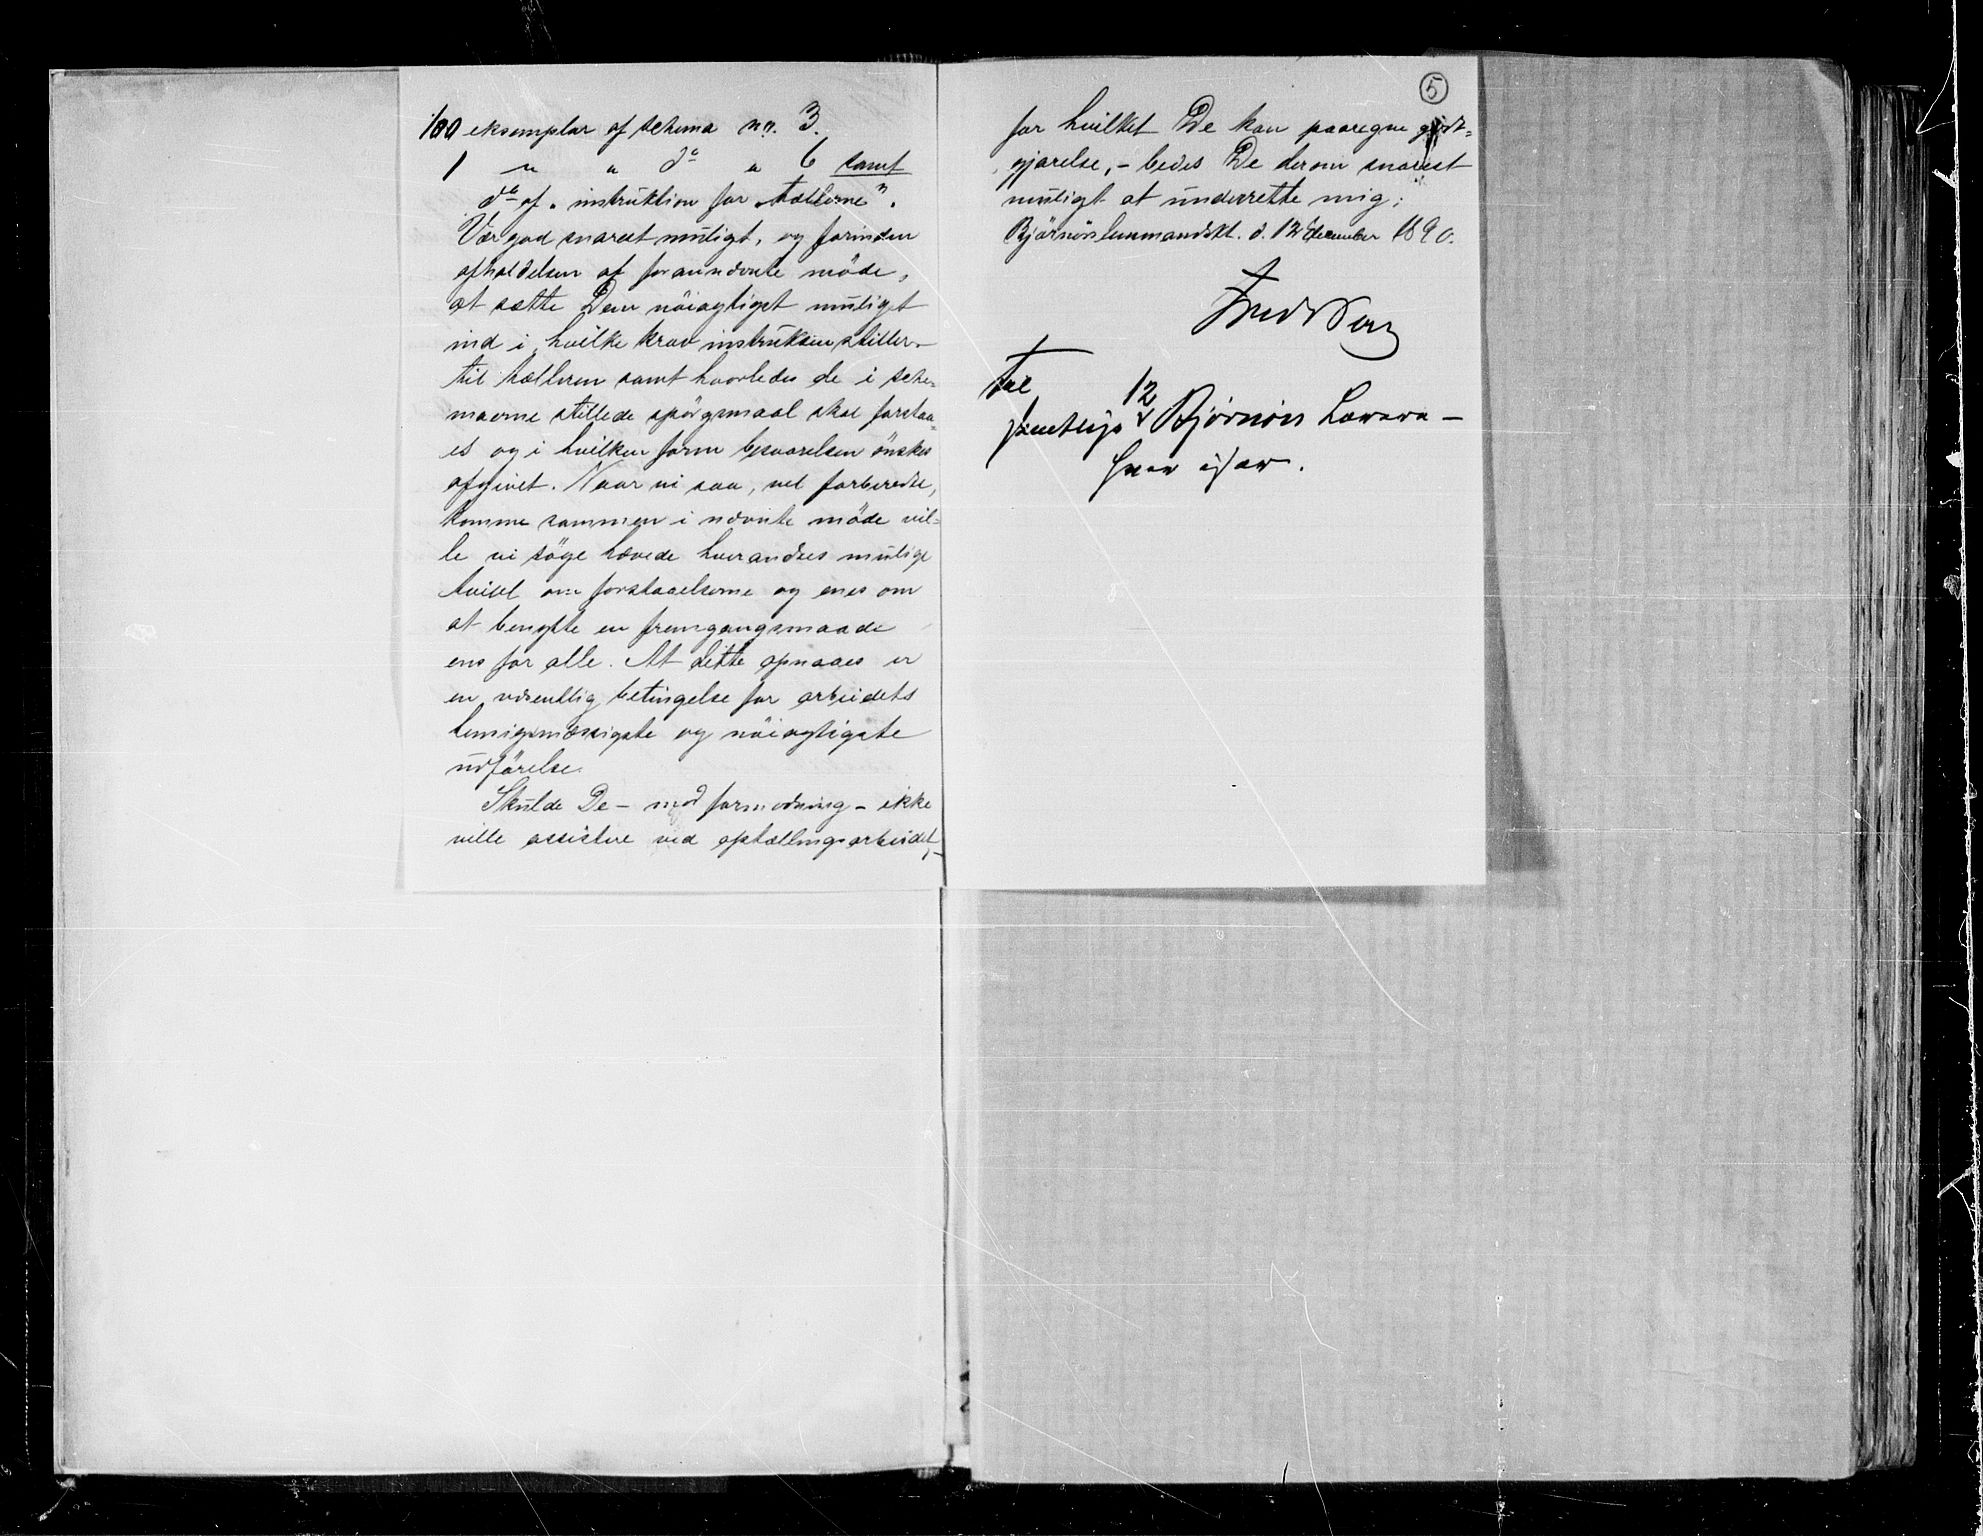 100 eksemplar af schema no. 3.
1 " " do " 6 samt
do af "instruktion for tællerne".
Vær god snarest muligt, og forinden
afholdelsen af forannævnte möde,
at sætte Dem nöiagtigst muligst
ind i, hvilke krav instruksen stiller
til tælleren samt hvorledes de i sche-
maerne stillede spörgsmaal skal forstaa-
es og i hvilken form besvarelsen önskes
afgivet. Naar vi saa, vel forberedte,
komme sammen i nævnte möde vil-
le vi söge hævede hverandres mulige
tvivl om forstaaelserne og enes om
at benytte en fremgangsmaade
ens for alle. At dette opnaaes er
en væsentlig betingelse for arbeidets
hensigtsmæssigste og nöiagtigste
udförelse.
Skulde De - mod formodning - ikke
ville assistere ved optællingsarbeidet,-
5
for hvilket De kan paaregne godt-
gjørelse, - bedes De derom snarest
muligt at underrette mig;
Bjørnörs lensmandskt. d. 12 december 1890.
Til
samtlige 12 Bjørnörs Lærere -
hver især.